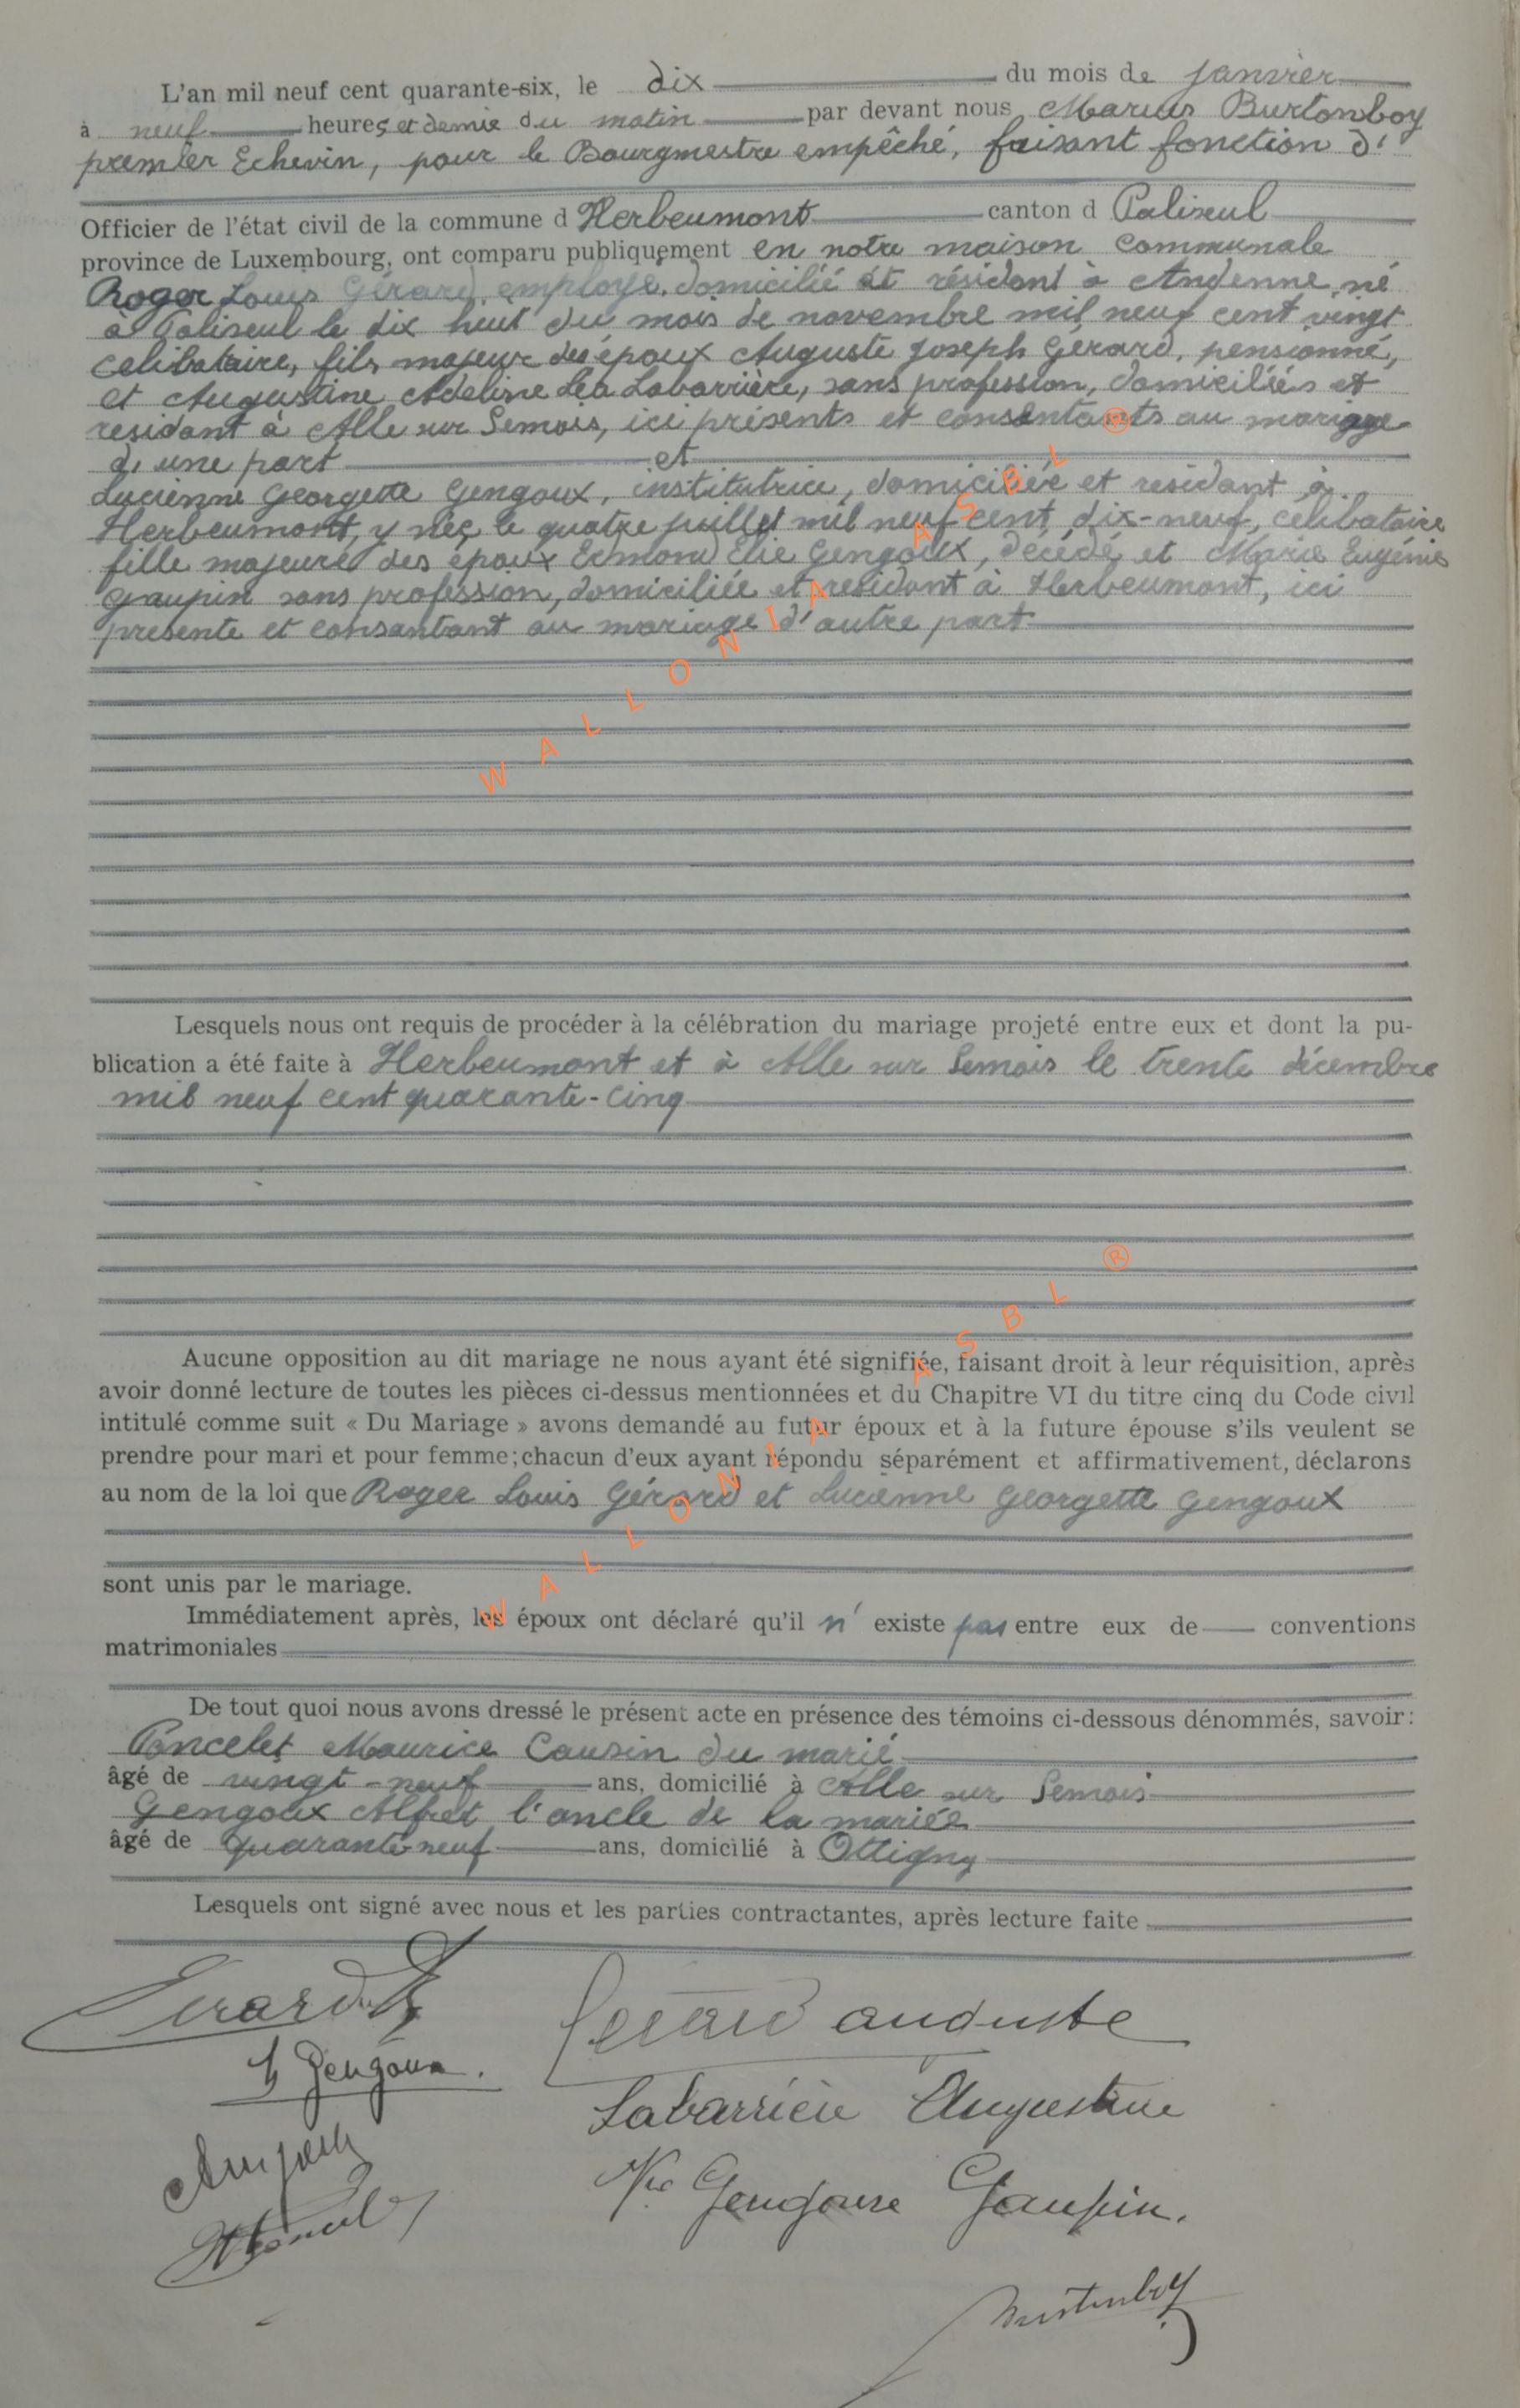 L'an mil neuf cent quarante-six, le dix du mois de janvier
à neuf heures et demie du matin par devant nous Marius Burtonboy
premier Echevin, pour le Bourgmestre empêché, faisant fonction d'
Officier de l'état civil de la commune d Herbeumont canton d Paliseul
province de Luxembourg, ont comparu publiquement en notre maison communale
Roger Louis Gérard, employé, domicilié et résidant à Andenne, né
à Paliseul le dix huit du mois de novembre mil neuf cent vingt
célibataire, fils majeur des époux Auguste Joseph Gérard, pensionné,
et Augustine Adeline Léa Labarrière, sans profession, domiciliés et
résidant à Alle sur Semois, ici présents et consentants au mariage
d'une part et
Lucienne Georgette Gengoux, institutrice, domiciliée et résidant à
Herbeumont, y née le quatre juillet mil neuf cent dix-neuf, célibataire
fille majeure des époux Edmond Elie Gengoux, décédé et Marie Eugénie
Gaupin sans profession, domiciliée et résidant à Herbeumont, ici
présente et consentant au mariage d'autre part
WALLONIA ASBL ®
Lesquels nous ont requis de procéder à la célébration du mariage projeté entre eux et dont la pu-
blication a été faite à Herbeumont et à Alle sur Semois le trente décembre
mil neuf cent quarante-cinq
Aucune opposition au dit mariage ne nous ayant été signifiée, faisant droit à leur réquisition, après
avoir donné lecture de toutes les pièces ci-dessus mentionnées et du Chapitre VI du titre cinq du Code civil
intitulé comme suit « Du Mariage » avons demandé au futur époux et à la future épouse s'ils veulent se
prendre pour mari et pour femme; chacun d'eux ayant répondu séparément et affirmativement, déclarons
au nom de la loi que Roger Louis Gérard et Lucienne Georgette Gengoux
WALLONIA ASBL ®
sont unis par le mariage.
Immédiatement après, les époux ont déclaré qu'il n' existe pas entre eux de conventions
matrimoniales
De tout quoi nous avons dressé le présent acte en présence des témoins ci-dessous dénommés, savoir:
Poncelet Maurice Cousin du marié
âgé de vingt-neuf ans, domicilié à Alle sur Semois
Gengoux Alfred l'oncle de la mariée
âgé de quarante neuf ans, domicilié à Ottigny
Lesquels ont signé avec nous et les parties contractantes, après lecture faite
Gérard
Gérard auguste
L Gengoux.
Labarrière Augustine
Vve Gengoux Gaupin.
Burtonboy